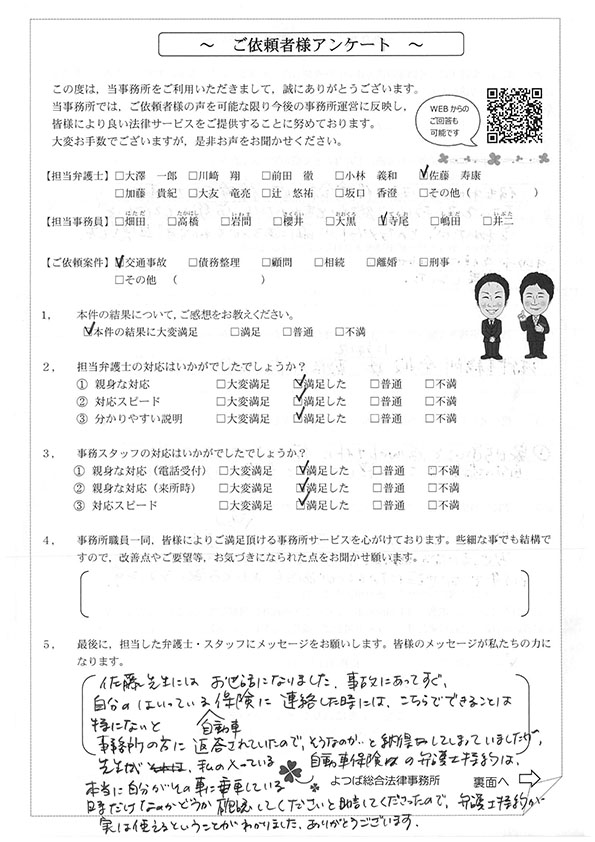 ～ ご依頼者様アンケート ～
この度は，当事務所をご利用いただきまして，誠にありがとうございます。
当事務所では，ご依頼者様の声を可能な限り今後の事務所運営に反映し，
皆様により良い法律サービスをご提供することに努めております。
大変お手数でございますが，是非お声をお聞かせください。
WEBからの
ご回答も
可能です
【担当弁護士】□大澤 一郎 □川﨑 翔 □前田 徹 □小林 義和 ☑佐藤 寿康
□加藤 貴紀 □大友 竜亮 □辻 悠祐 □坂口 香澄 □その他（ ）
【担当事務員】□畑田 □高橋 □岩間 □櫻井 □大黒 ☑寺尾 □嶋田 □井二
【ご依頼案件】☑交通事故 □債務整理 □顧問 □相続 □離婚 □刑事
□その他 （ ）
１． 本件の結果について，ご感想をお教えください。
☑本件の結果に大変満足 □満足 □普通 □不満
２． 担当弁護士の対応はいかがでしたでしょうか？
① 親身な対応 □大変満足 ☑満足した □普通 □不満
② 対応スピード □大変満足 ☑満足した □普通 □不満
③ 分かりやすい説明 □大変満足 ☑満足した □普通 □不満
３． 事務スタッフの対応はいかがでしたでしょうか？
① 親身な対応（電話受付） □大変満足 ☑満足した □普通 □不満
② 親身な対応（来所時） □大変満足 ☑満足した □普通 □不満
③ 対応スピード □大変満足 ☑満足した □普通 □不満
４． 事務所職員一同，皆様によりご満足頂ける事務所サービスを心がけております。些細な事でも結構で
すので，改善点やご要望等，お気づきになられた点をお聞かせ願います。
５． 最後に，担当した弁護士・スタッフにメッセージをお願いします。皆様のメッセージが私たちの力に
なります。
佐藤先生には お世話になりました。事故にあってすぐ、
自分のはいっている保険に 連絡した時には、こちらでできることは
特にないと 自動車
事務的の方に 返答されていたので、そうなのか…と納得してしまっていましたが、
先生が 私の入っている 自動車保険の弁護士特約は、
本当に自分がその車に乗車している
よつば総合法律事務所 裏面へ
時だけなのかどうか確認してくださいと助言してくださったので、弁護士特約が
実は使えるということがわかりました。ありがとうございます。